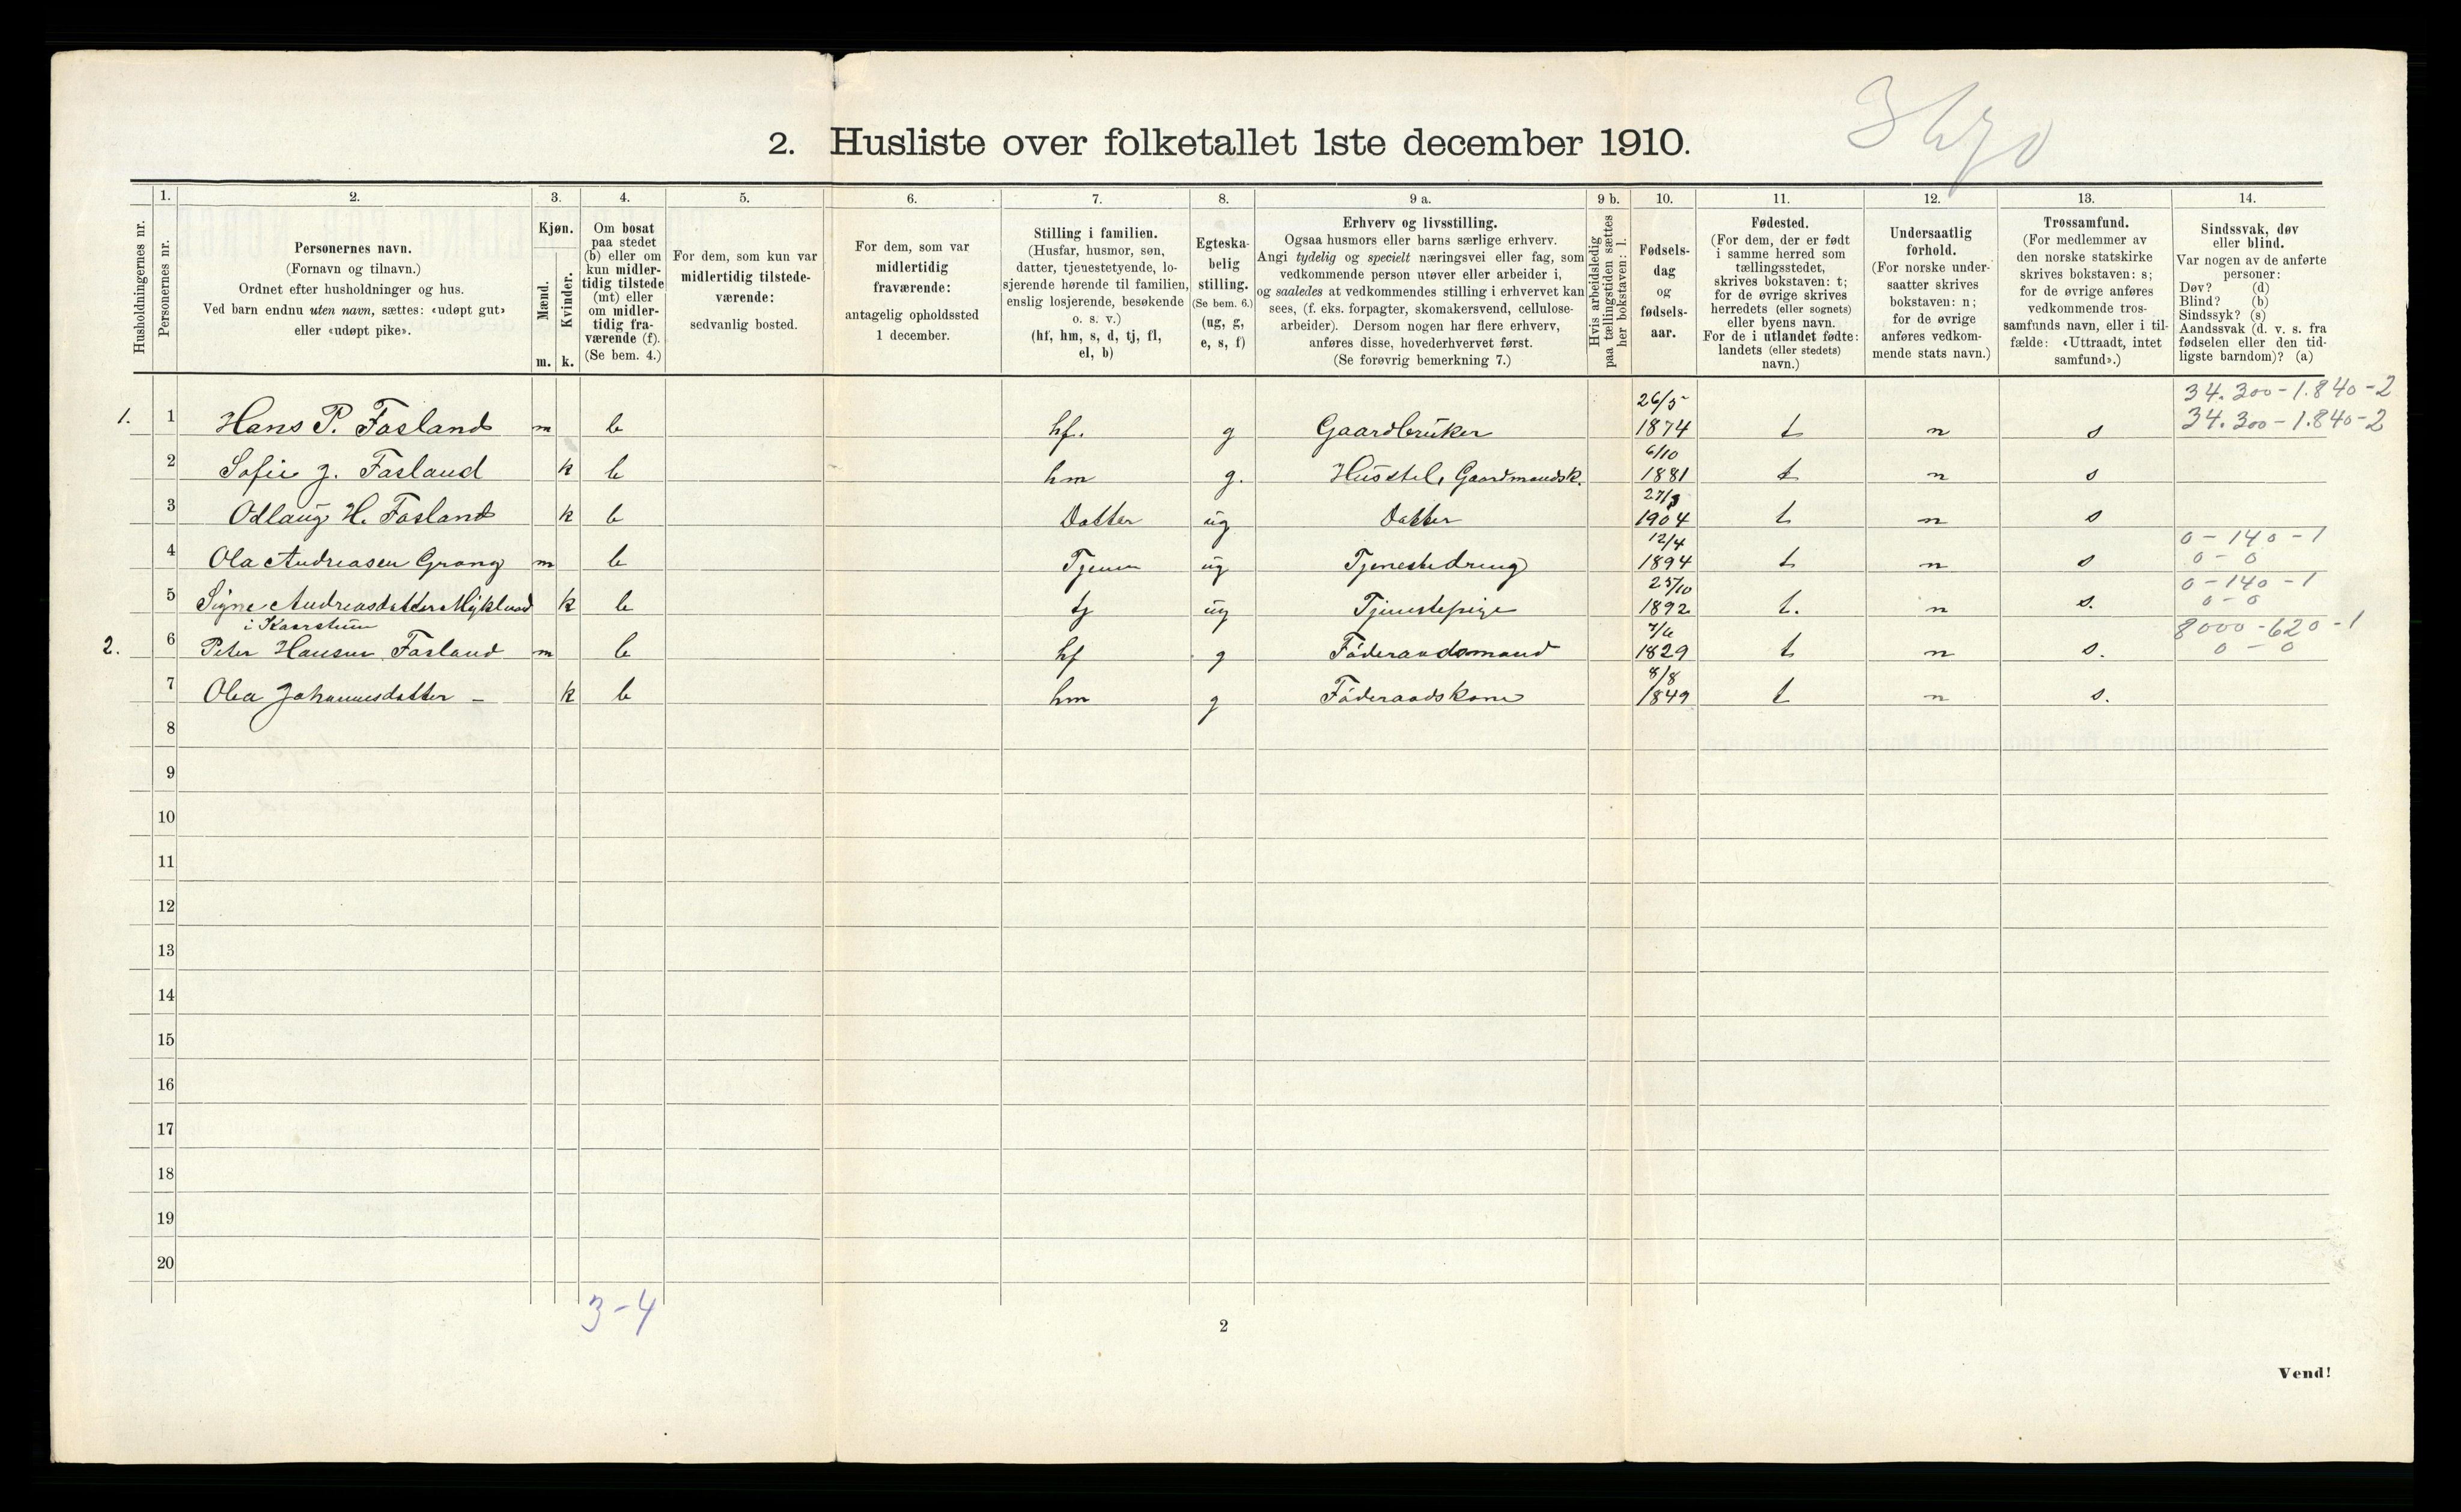 2. Husliste over folketallet 1ste december 1910.
Husholdningernes nr.
1. Personernes nr.
2. Personernes navn. (Fornavn og tilnavn.) Ordnet efter husholdninger og hus. Ved barn endnu uten navn, sættes: «udøpt gut» eller «udøpt pike».
3. Kjøn. Mænd. m. Kvinder. k.
4. Om bosat paa stedet (b) eller om kun midlertidig tilstede (mt) eller om midlertidig fraværende (f). (Se bem. 4.)
5. For dem, som kun var midlertidig tilstedeværende: sedvanlig bosted.
6. For dem, som var midlertidig fraværende: antagelig opholdssted 1 december.
7. Stilling i familien. (Husfar, husmor, søn, datter, tjenestetyende, losjerende hørende til familien, enslig losjerende, besøkende o. s. v.) (hf, hm, s, d, tj, fl, el, b)
8. Egteskabelig stilling. (Se bem. 6.) (ug, g, e, s, f)
9 a. Erhverv og livsstilling. Ogsaa husmors eller barns særlige erhverv. Angi tydelig og specielt næringsvei eller fag, som vedkommende person utøver eller arbeider i, og saaledes at vedkommendes stilling i erhvervet kan sees, (f. eks. forpagter, skomakersvend, cellulosearbeider). Dersom nogen har flere erhverv, anføres disse, hovederhvervet først. (Se forøvrig bemerkning 7.)
9 b. Hvis arbeidsledig paa tællingstiden sættes her bokstaven: l.
10. Fødselsdag og fødselsaar.
11. Fødested. (For dem, der er født i samme herred som tællingsstedet, skrives bokstaven: t; for de øvrige skrives herredets (eller sognets) eller byens navn. For de i utlandet fødte: landets (eller stedets) navn.)
12. Undersaatlig forhold. (For norske undersaatter skrives bokstaven: n; for de øvrige anføres vedkommende stats navn.)
13. Trossamfund. (For medlemmer av den norske statskirke skrives bokstaven: s; for de øvrige anføres vedkommende trossamfunds navn, eller i tilfælde: «Uttraadt, intet samfund».)
14. Sindssvak, døv eller blind. Var nogen av de anførte personer: Døv? (d) Blind? (b) Sindssyk? (s) Aandssvak (d. v. s. fra fødselen eller den tidligste barndom)? (a)
34.300-1.840-2
1. 1 Hans P. Fasland m b hf. g Gaardbruker 26/5 1874 t n s 34.300-1.840-2
2 Sofie J. Fasland k b hm g. Husstel, Gaardmandsk. 6/10 1881 t n s
3 Odlaug H. Fasland k b Datter ug Datter 27/3 1904 t n s
0-140-1
4 Ola Andreasen Grong m b Tjener ug Tjenestedreng 12/4 1894 t n s 0-0
0-140-1
5 Signe Andreasdatter Mykland k b tj ug Tjenestepige 25/10 1892 t. n s. 0-0
i Kaarstuen
8000-620-1
2. 6 Peter Hansen Fasland m b hf g Føderaadsmand 7/6 1829 t n s. 0-0
7 Olea Johannesdatter - k b hm g Føderaadskone 8/8 1849 t n s.
8
9
10
11
12
13
14
15
16
17
18
19
20
3-4
2
Vend!